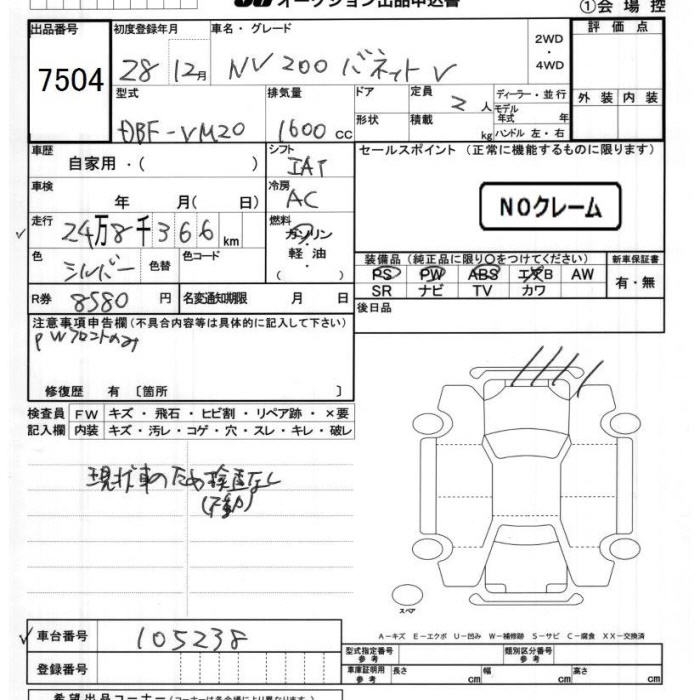 オークション出品申込書 ①会場控
出品番号 初度登録年月 車名・グレード 評価点
7504 28 12月 NV200 バネットV 2WD・4WD
型式 排気量 ドア 定員 2人 ディーラー・並行 外装 内装
DBF-VM20 1600cc 形状 積載 kg モデル年式 年 ハンドル 左・右
車歴 シフト セールスポイント (正常に機能するものに限ります)
自家用・( ) IAT
車検 冷房 NOクレーム
年 月( 日) AC
走行 燃料
24万8千366km ガソリン・軽油・( )
色 色替 色コード 装備品(純正品に限り○をつけてください) 新車保証書
シルバー PS PW ABS エアB AW 有・無
SR ナビ TV カワ
R券 8580円 名変通知期限 月 日 後日品
注意事項申告欄(不具合内容等は具体的に記入して下さい)
PWフロントのみ
修復歴 有 〔箇所 〕
検査員 FW キズ・飛石・ヒビ割・リペア跡・×要
記入欄 内装 キズ・汚レ・コゲ・穴・スレ・キレ・破レ
現状車のため検査なし
(不動)
スペア
車台番号 105238 A-キズ E-エクボ U-凹み W-補修跡 S-サビ C-腐食 XX-交換済
登録番号 型式指定番号 参考 類別区分番号 参考
車庫証明用 参考 長さ cm 幅 cm 高さ cm
希望出品コーナー(コーナーは各会場により異なります)